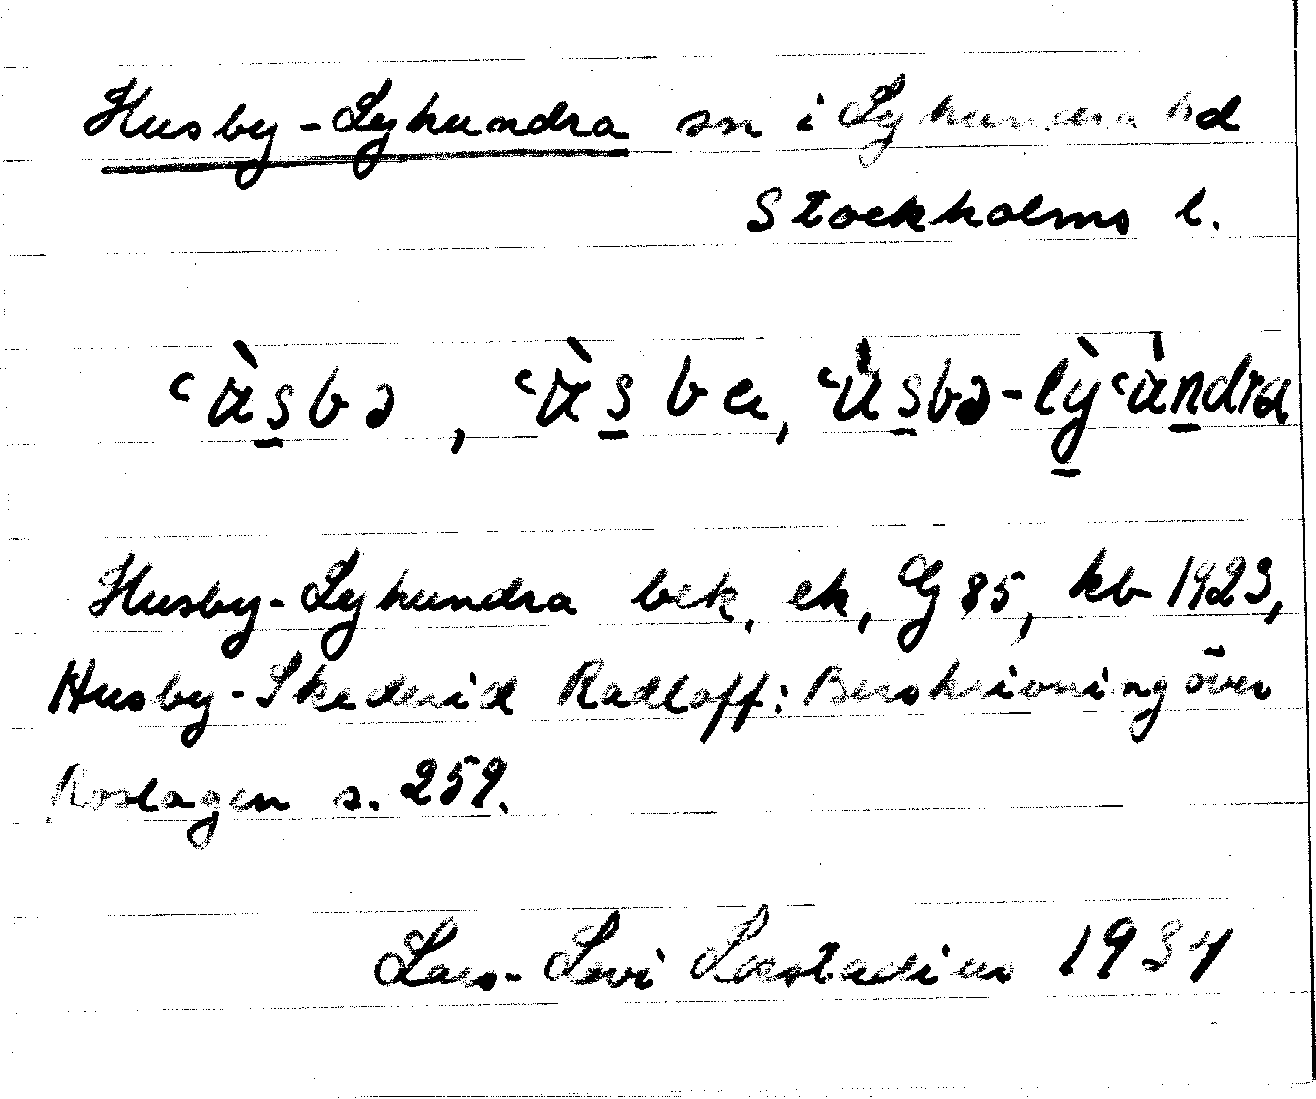 Husby-Lyhundra sn i Lyhundra hd
Stockholms l.
ʿùsbə, ʿùsbe, ʿùsbə-lỳʿùndra
Husby-Lyhundra bek, ek, G 85, kb 1923,
Husby-Skederid Radloff: Berskrivning över
Roslagen s. 259.
Lars-Levi Læstadius 1934